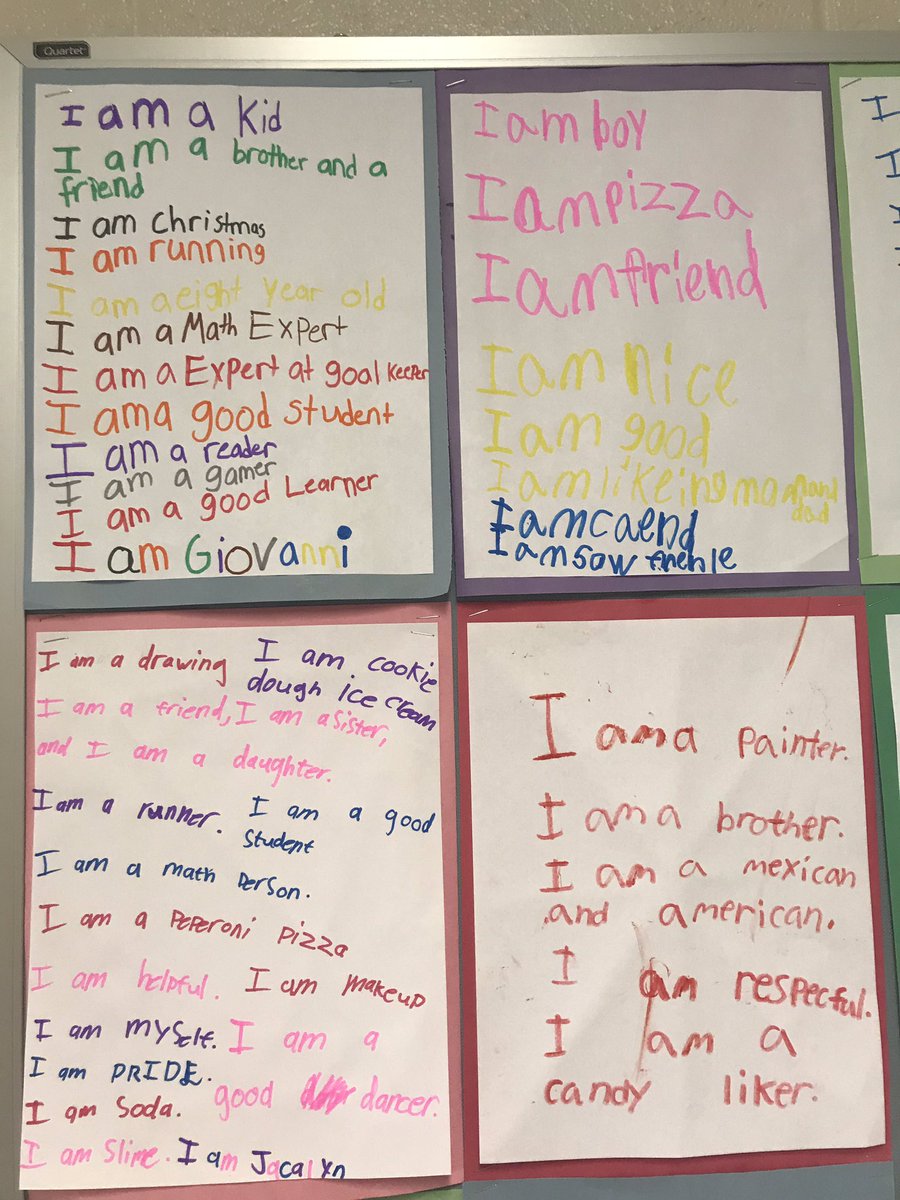 Quartet
I am a Kid
I am a brother and a
friend
I am christmas
I am running
I am a eight year old
I am a Math Expert
I am a Expert at goal keeper
I am a good student
I am a reader
I am a gamer
I am a good Learner
I am Giovanni
I am boy
I am pizza
I am friend
I am nice
I am good
I am likeing mom and
dad
I am caend
I am sow
I am a drawing
I am cookie
dough ice cream
I am a friend, I am a sister,
and I am a daughter.
I am a runner.
I am a good
student
I am a math person.
I am a peperoni pizza
I am helpful. I am makeup
I am myself. I am a
good dancer.
I am PRIDE.
I am Soda.
I am Slime. I am Jacalyn
I am a painter.
I am a brother.
I am a mexican
and american.
I am respecful.
I am a
candy liker.
I
I